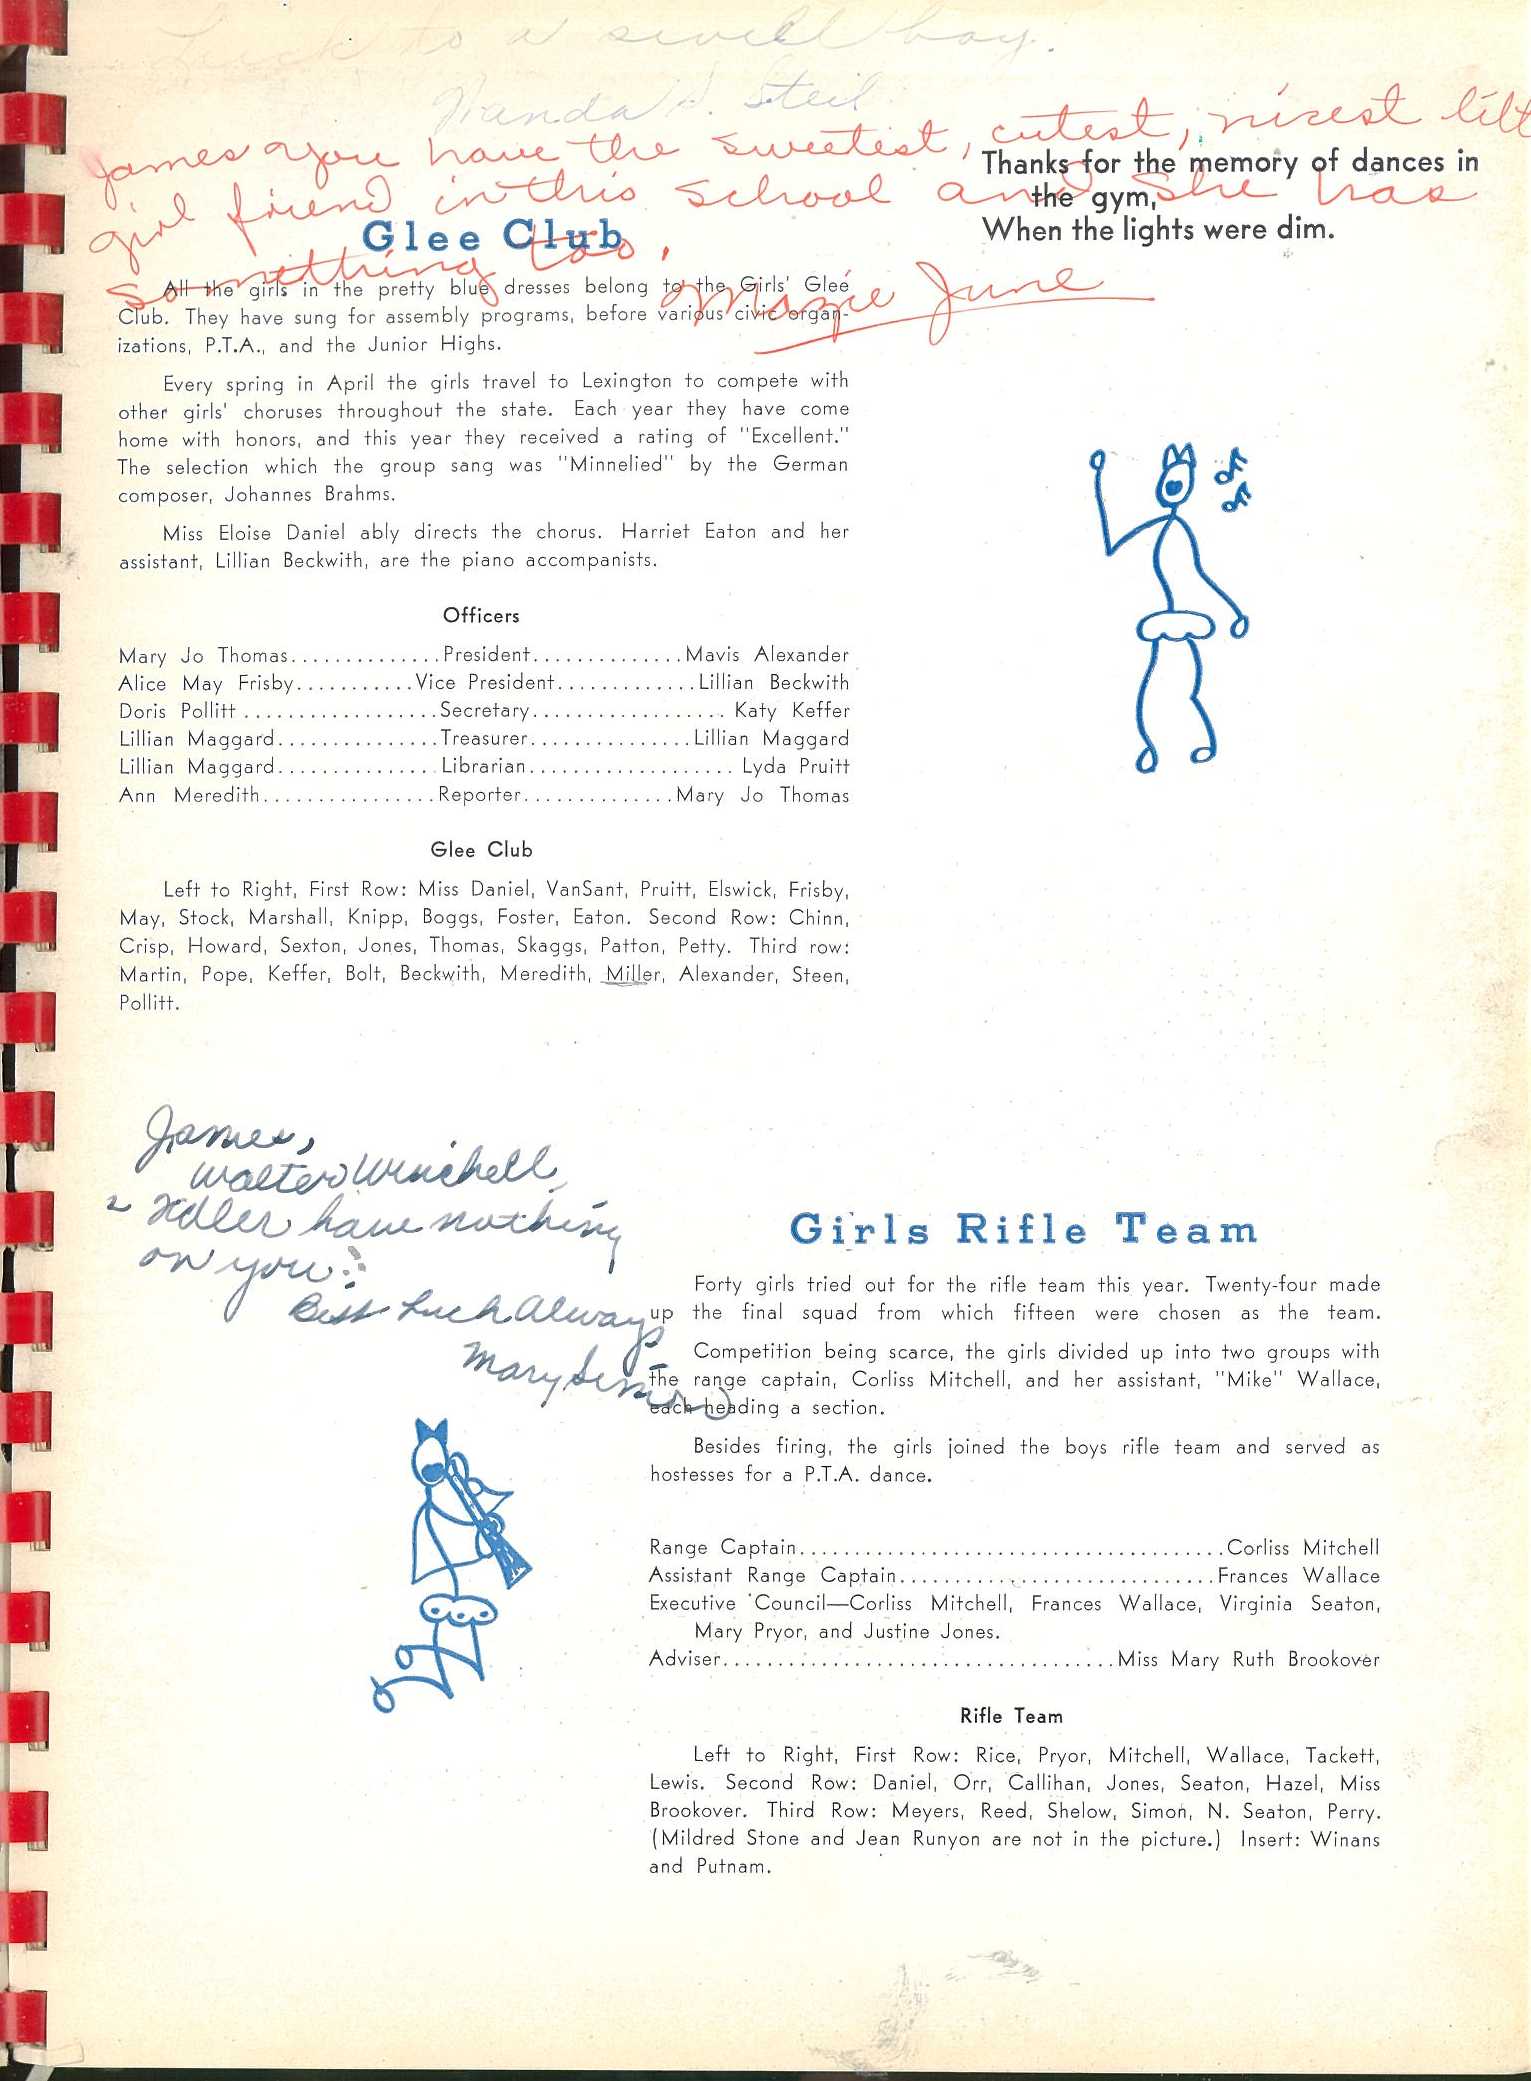 Luck to a swell boy.
Wanda S. Steil
James you have the sweetest, cutest, nicest
girl friend in this school and she has
something too.
June
Thanks for the memory of dances in
the gym,
When the lights were dim.
Glee Club
All the girls in the pretty blue dresses belong to the Girls' Glee
Club. They have sung for assembly programs, before various civic organ-
izations, P.T.A., and the Junior Highs.
Every spring in April the girls travel to Lexington to compete with
other girls' choruses throughout the state. Each year they have come
home with honors, and this year they received a rating of "Excellent."
The selection which the group sang was "Minnelied" by the German
composer, Johannes Brahms.
Miss Eloise Daniel ably directs the chorus. Harriet Eaton and her
assistant, Lillian Beckwith, are the piano accompanists.
Officers
Mary Jo Thomas..............President..............Mavis Alexander
Alice May Frisby...........Vice President.............Lillian Beckwith
Doris Pollitt..................Secretary.................. Katy Keffer
Lillian Maggard...............Treasurer...............Lillian Maggard
Lillian Maggard...............Librarian................... Lyda Pruitt
Ann Meredith................Reporter..............Mary Jo Thomas
Glee Club
Left to Right, First Row: Miss Daniel, VanSant, Pruitt, Elswick, Frisby,
May, Stock, Marshall, Knipp, Boggs, Foster, Eaton. Second Row: Chinn,
Crisp, Howard, Sexton, Jones, Thomas, Skaggs, Patton, Petty. Third row:
Martin, Pope, Keffer, Bolt, Beckwith, Meredith, Miller, Alexander, Steen,
Pollitt.
James,
Walter Winchell
have nothing
on you!
Best Luck Always
Mary Simon
Girls Rifle Team
Forty girls tried out for the rifle team this year. Twenty-four made
up the final squad from which fifteen were chosen as the team.
Competition being scarce, the girls divided up into two groups with
the range captain, Corliss Mitchell, and her assistant, "Mike" Wallace,
each heading a section.
Besides firing, the girls joined the boys rifle team and served as
hostesses for a P.T.A. dance.
Range Captain.......................................Corliss Mitchell
Assistant Range Captain.............................Frances Wallace
Executive Council—Corliss Mitchell, Frances Wallace, Virginia Seaton,
Mary Pryor, and Justine Jones.
Adviser....................................Miss Mary Ruth Brookover
Rifle Team
Left to Right, First Row: Rice, Pryor, Mitchell, Wallace, Tackett,
Lewis. Second Row: Daniel, Orr, Callihan, Jones, Seaton, Hazel, Miss
Brookover. Third Row: Meyers, Reed, Shelow, Simon, N. Seaton, Perry.
(Mildred Stone and Jean Runyon are not in the picture.) Insert: Winans
and Putnam.